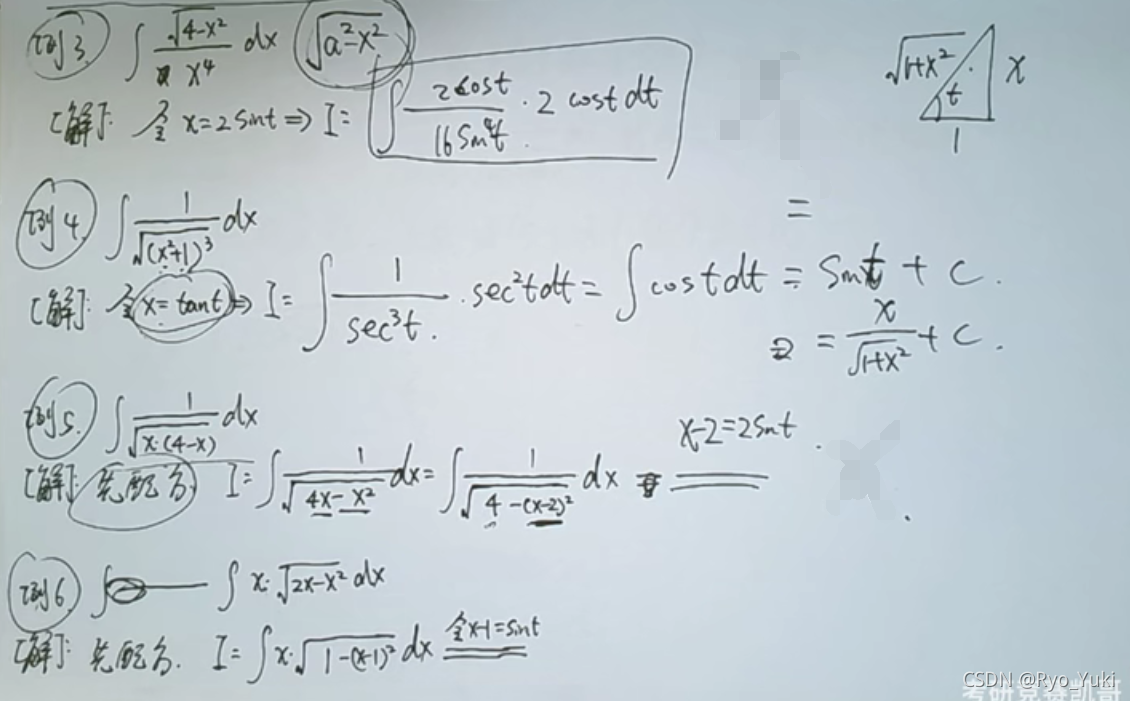 例3. ∫ √(4-x²) / x⁴ dx √(a²-x²)
[解]: 令 x=2sint ⇒ I= ∫ 2cost / 16sin⁴t · 2 cost dt
√(1+x²) t x 1
例4. ∫ 1 / √((x²+1)³) dx
=
[解]: 令 x=tant ⇒ I= ∫ 1 / sec³t. · sec²t dt = ∫ cost dt = sint + C.
= x / √(1+x²) + C.
例5. ∫ 1 / √(x·(4-x)) dx
x-2=2sint
[解]: 先配方 I= ∫ 1 / √(4x-x²) dx = ∫ 1 / √(4-(x-2)²) dx
例6. ∫ x·√(2x-x²) dx
[解]: 先配方. I= ∫ x·√(1-(x-1)²) dx 令x-1=sint
CSDN @Ryo_Yuki
考研竞赛凯哥